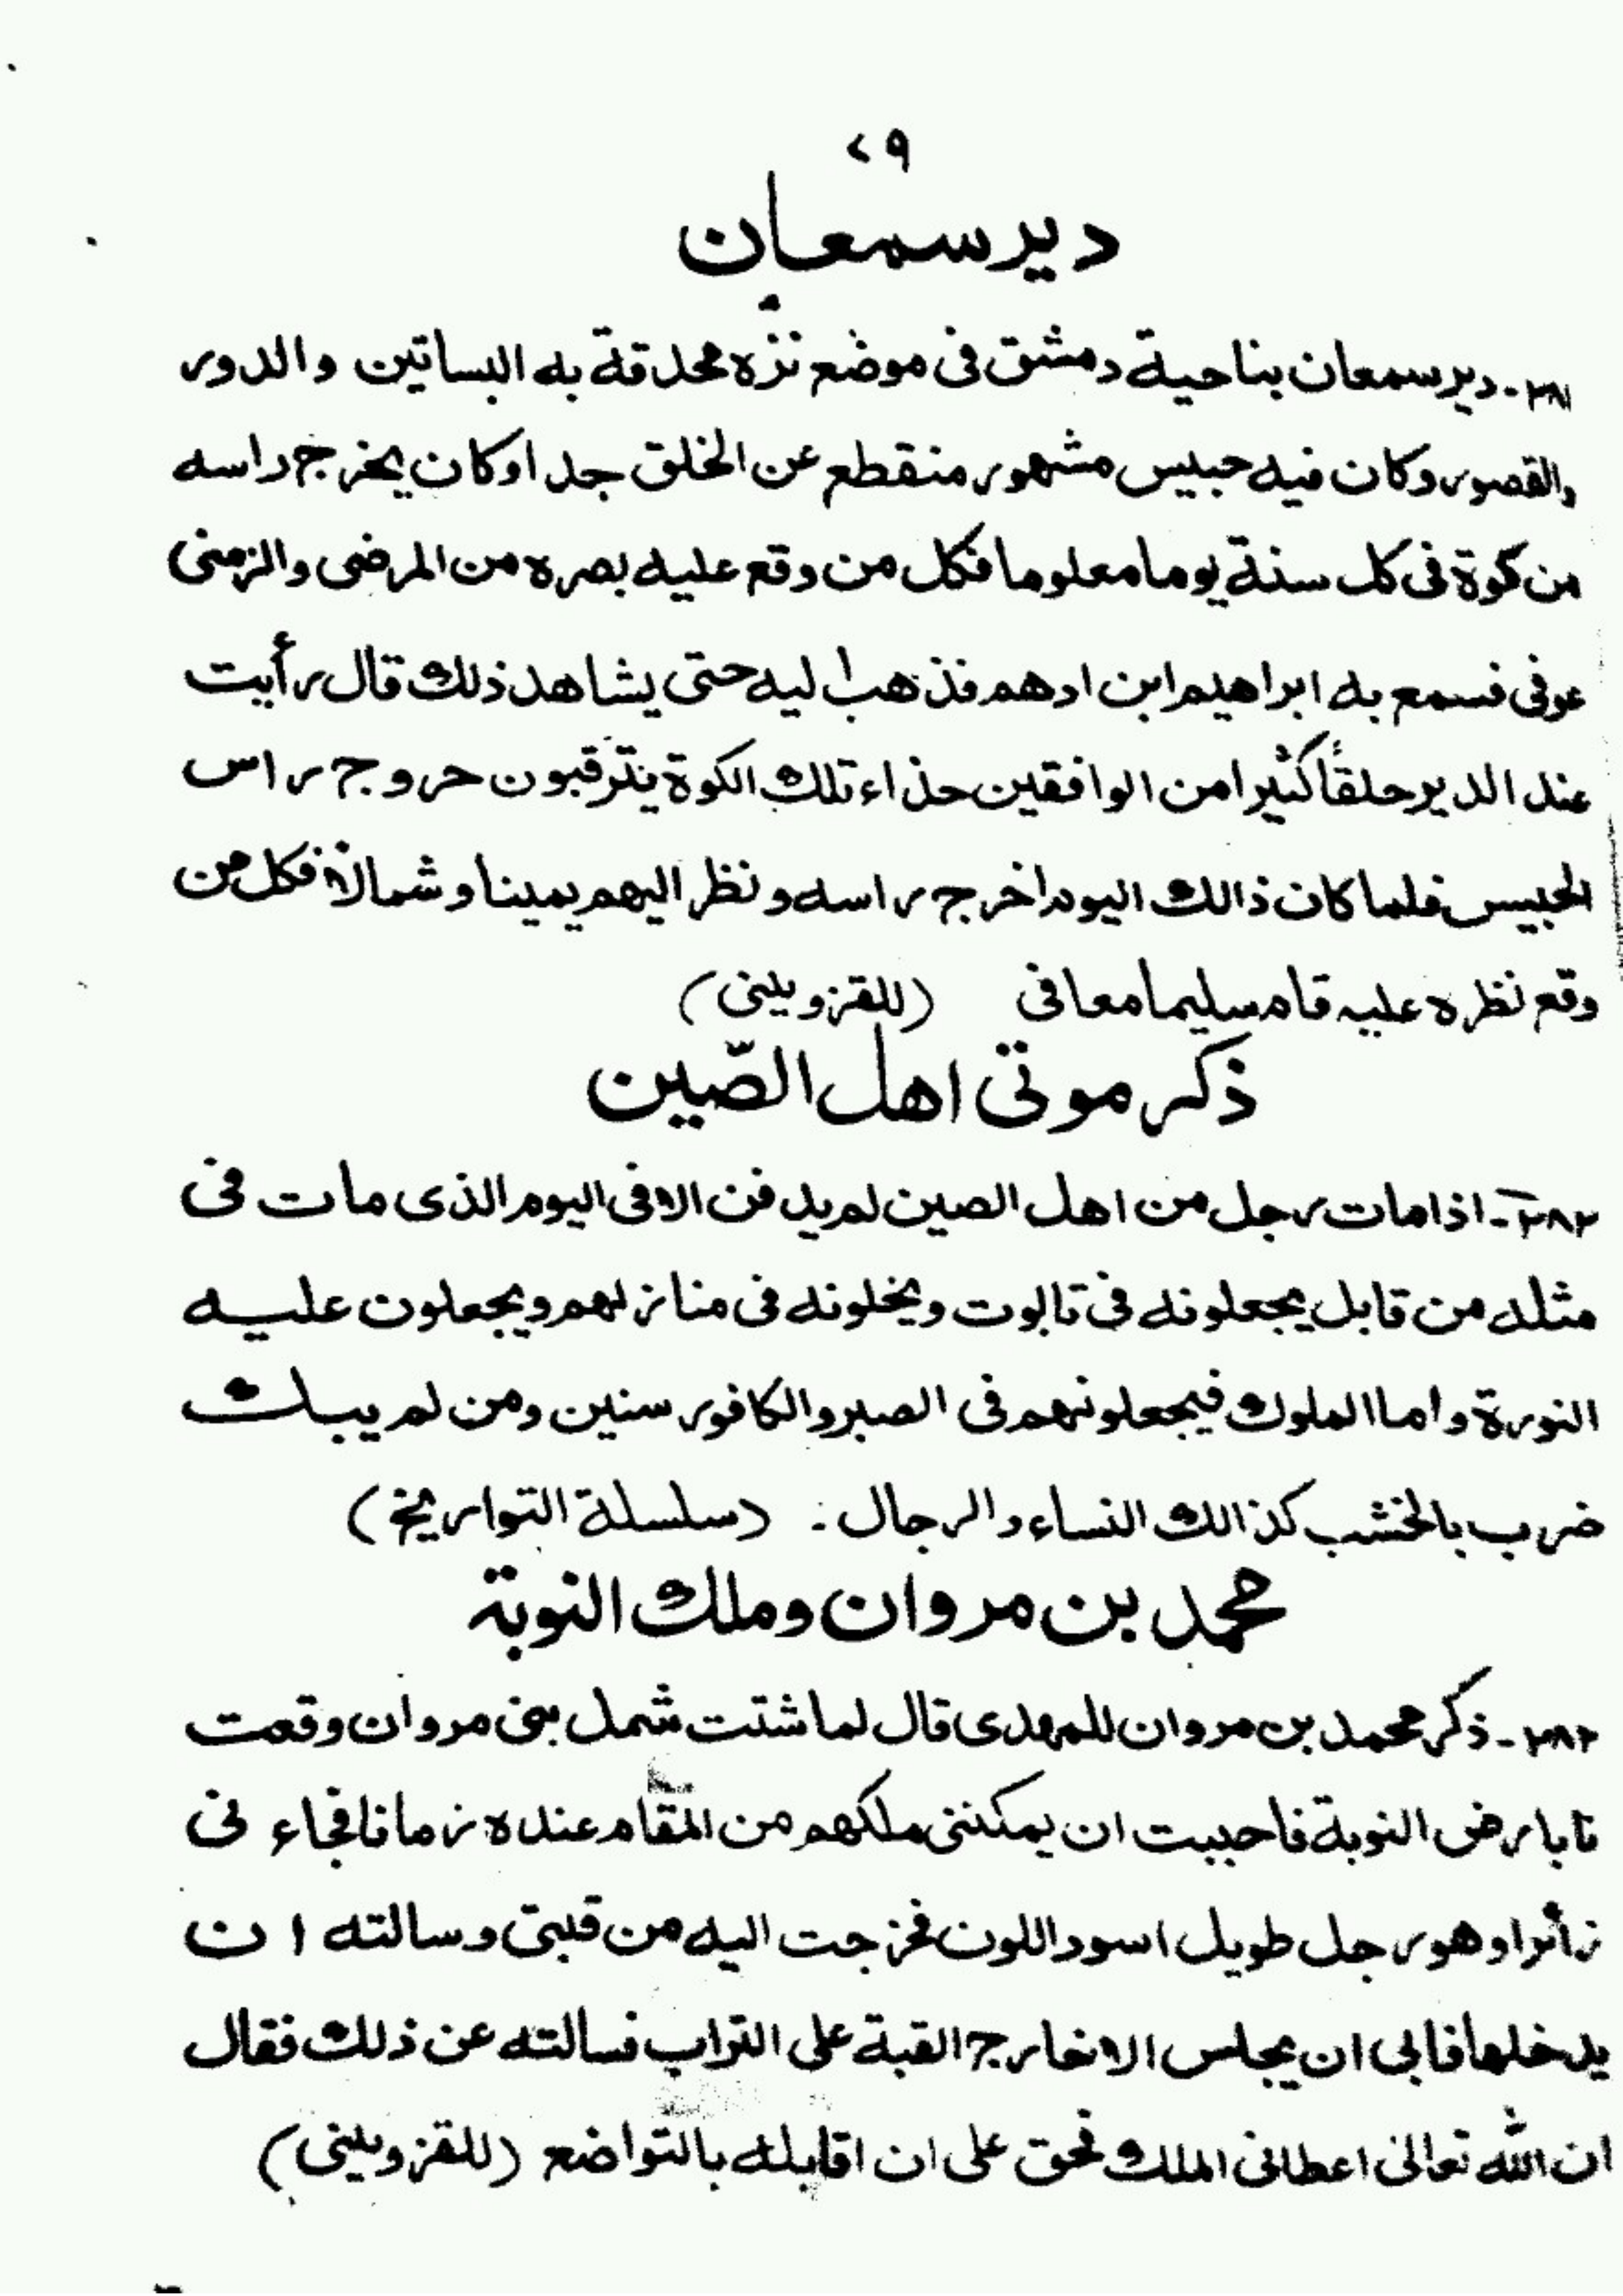 ٢٩
دير سمعان
٢٨١- دير سمعان بناحية دمشق فى موضع نزه محدقة به البساتين والدور
والقصور وكان فيه حبيس مشهور منقطع عن الخلق جدا وكان يخرج راسه
من كوة فى كل سنة يوما معلوما فكل من وقع عليه بصره من المرضى والزمنى
عوفى فسمع به ابراهيم ابن ادهم فذهب اليه حتى يشاهد ذلك قال رأيت
عند الدير حلقاً كثيرا من الوافقين حذاء تلك الكوة يترقبون حروج راس
الحبيس فلما كان ذالك اليوم اخرج راسه ونظر اليهم يمينا وشمالا فكل من
وقع نظره عليه قام سليما معافى (للقزوينى)
ذكر موتى اهل الصّين
٢٨٢- اذا مات رجل من اهل الصين لم يدفن الا فى اليوم الذى مات فى
مثله من قابل يجعلونه فى تابوت ويخلونه فى منازلهم ويجعلون عليه
النورة واما الملوك فيجعلونهم فى الصبر والكافور سنين ومن لم يبك
ضرب بالخشب كذالك النساء والرجال: (سلسلة التواريخ)
محمد بن مروان وملك النوبة
٢٨٢- ذكر محمد بن مروان للمهدى قال لما شتت شمل بنى مروان وقعت
نا بارض النوبة فاحببت ان يمكننى ملكهم من المقام عنده زمانا فجاء نى
زأئرا وهو رجل طويل اسود اللون فخرجت اليه من قبتى وسالته ان
يدخلها فابى ان يجلس الا خارج القبة على التراب فسالته عن ذلك فقال
ان الله تعالى اعطانى الملك فحق على ان اقابله بالتواضع (للقزوينى)